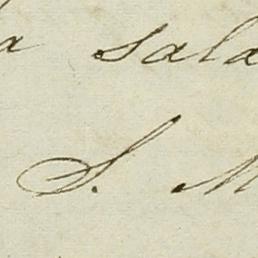 a sala
S. M